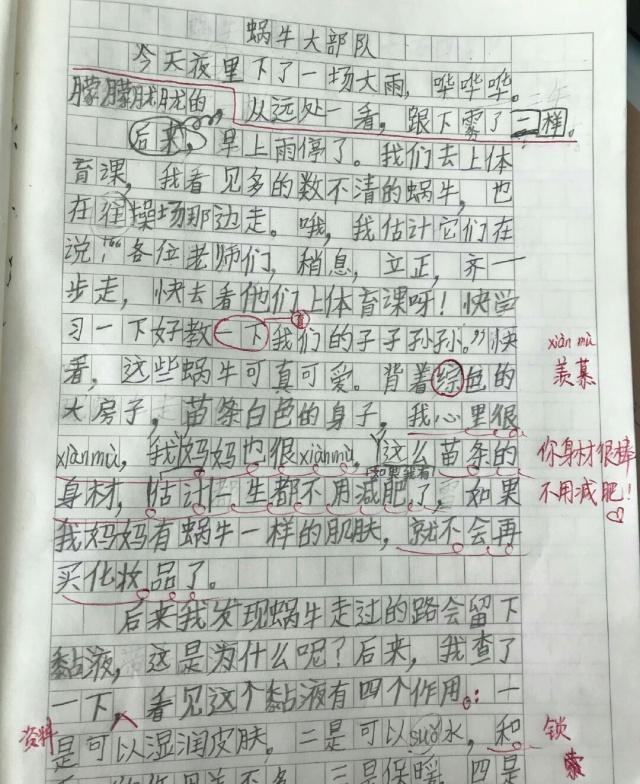 蜗牛大部队
今天夜里下了一场大雨，哗哗哗。
朦朦胧胧的，从远处一看，跟下雾了一样。
后来，早上雨停了。我们去上体
育课，我看见多的数不清的蜗牛，也
在往操场那边走。哦，我估计它们在
说：“各位老师们，稍息，立正，齐一
步走，快去看他们上体育课呀！快学
习一下好教一下我们的子子孙孙。”快
看，这些蜗牛可真可爱。背着综色的
xiàn mù
羡慕
大房子，苗条白色的身子，我心里很
xiànmù，我妈妈也很xiànmù，这么苗条的
你身材很棒
如果我有
身材，估计一生都不用减肥了，如果
不用减肥！
我妈妈有蜗牛一样的肌肤，就不会再
买化妆品了。
后来我发现蜗牛走过的路会留下
黏液，这是为什么呢？后来，我查了
一下，看见这个黏液有四个作用：一
资料
是可以湿润皮肤。二是可以suǒ水，和
锁
三是保暖，四是